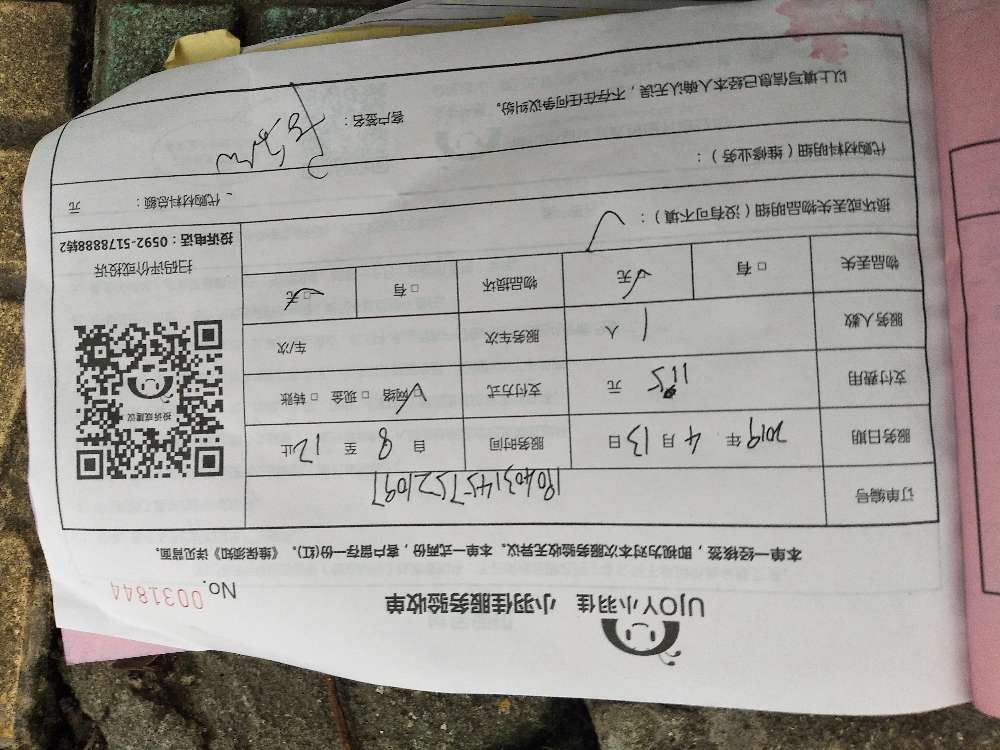 UJOY小羽佳 小羽佳服务验收单
No. 0031844
本单一经核签，即视为对本次服务验收无异议。本单一式两份，客户留存一份(红)。《维保须知》详见背面。
订单编号
服务日期 2019年 4月13日 服务时间 自 8 至 12止
支付费用 元 支付方式 网络 □现金 □转账
服务人数 1 人 服务车次 车/次
物品丢失 □有 无 物品损坏 □有 □无
投诉或建议
扫码评价或投诉
投诉电话：0592-5178888转2
损坏或丢失物品明细（没有可不填）：
代购材料明细（维修业务）：
代购材料总额： 元
以上填写信息已经本人确认无误，不存在任何争议纠纷。
客户签名：